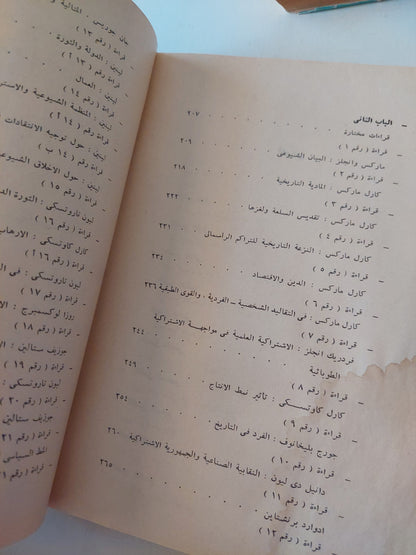 - الباب الثانى
قراءات مختارة . . . . . . ٢٠٧
- قراءة ( رقم ١ )
ماركس وانجلز : البيان الشيوعى . . . ٢٠٩
- قراءة ( رقم ٢ )
كارل ماركس : المادية التاريخية . . . ٢١٨
- قراءة ( رقم ٣ )
كارل ماركس : تقديس السلعة ولغزها . . ٢٢٢
- قراءة ( رقم ٤ )
كارل ماركس : النزعة التاريخية لتراكم الرأسمال . ٢٣١
- قراءة ( رقم ٥ )
كارل ماركس : الدين والاقتصاد . . . ٢٣٤
- قراءة ( رقم ٦ )
كارل ماركس : فى التقاليد الشخصية ـ الفردية ، والقوى الطبقية ٢٣٦
- قراءة ( رقم ٧ )
فردريك انجلز : الاشتراكية العلمية فى مواجهة الاشتراكية
الطوبائية . . . . . . ٢٤٤
- قراءة ( رقم ٨ )
كارل كاوتسكى : تأثير نمط الانتاج . . . ٢٤٦
- قراءة ( رقم ٩ )
جورج بليخانوف : الفرد فى التاريخ . . . ٢٥٤
- قراءة ( رقم ١٠ )
دانيل دى ليون : النقابية الصناعية والجمهورية الاشتراكية ٢٦٠
- قراءة ( رقم ١١ )
ادوارد برنشتاين . . . . . ٢٦٥
- قراءة ( رقم ١٢ )
جان جوريس : المثالية
- قراءة ( رقم ١٣ )
لينين : الدولة والثورة
- قراءة ( رقم ١٣ أ )
لينين : العمال
- قراءة ( رقم ١٤ )
لينين : المنظمة الشيوعية
- قراءة ( رقم ١٤ أ )
لينين : حول توجيه الانتقادات
- قراءة ( رقم ١٤ ب )
لينين : حول الاخلاق الشيوعية
- قراءة ( رقم ١٥ )
ليون تاروتسكى : الثورة
- قراءة ( رقم ١٦ )
كارل كاوتسكى : الارهاب
- قراءة ( رقم ١٦ أ )
ليون تاروتسكى : فى
- قراءة ( رقم ١٧ )
روزا لوكسمبرج :
- قراءة ( رقم ١٨ )
جوزيف ستالين :
- قراءة ( رقم ١٩ )
ليون تاروتسكى :
- قراءة ( رقم ٢٠ )
جوزيف ستالين
- قراءة ( رقم ٢١
الخط السياسى
- قراءة ( رقم